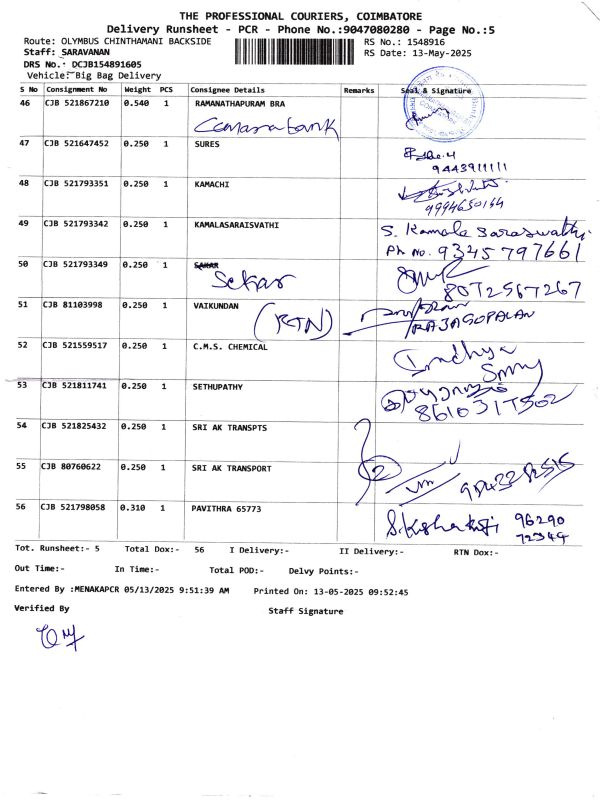 THE PROFESSIONAL COURIERS, COIMBATORE
Delivery Runsheet - PCR - Phone No.:9047080280 - Page No.:5
Route: OLYMBUS CHINTHAMANI BACKSIDE RS No.: 1548916
Staff: SARAVANAN RS Date: 13-May-2025
DRS No.: DCJB154891605
Vehicle: Big Bag Delivery
S No Consignment No Weight PCS Consignee Details Remarks Seal & Signature
46 CJB 521867210 0.540 1 RAMANATHAPURAM BRA
Canara bank
47 CJB 521647452 0.250 1 SURES
9443911111
48 CJB 521793351 0.250 1 KAMACHI
9994650144
49 CJB 521793342 0.250 1 KAMALASARAISVATHI S. Kamala Saraswathi
Ph No. 9345797661
50 CJB 521793349 0.250 1 SAKAR
Sekar 8072567267
51 CJB 81103998 0.250 1 VAIKUNDAN
(RTN) RAJAGOPALAN
52 CJB 521559517 0.250 1 C.M.S. CHEMICAL Indhya
53 CJB 521811741 0.250 1 SETHUPATHY
8610317502
54 CJB 521825432 0.250 1 SRI AK TRANSPTS
55 CJB 80760622 0.250 1 SRI AK TRANSPORT
56 CJB 521798058 0.310 1 PAVITHRA 65773 96290
72349
Tot. Runsheet:- 5 Total Dox:- 56 I Delivery:- II Delivery:- RTN Dox:-
Out Time:- In Time:- Total POD:- Delvy Points:-
Entered By :MENAKAPCR 05/13/2025 9:51:39 AM Printed On: 13-05-2025 09:52:45
Verified By Staff Signature